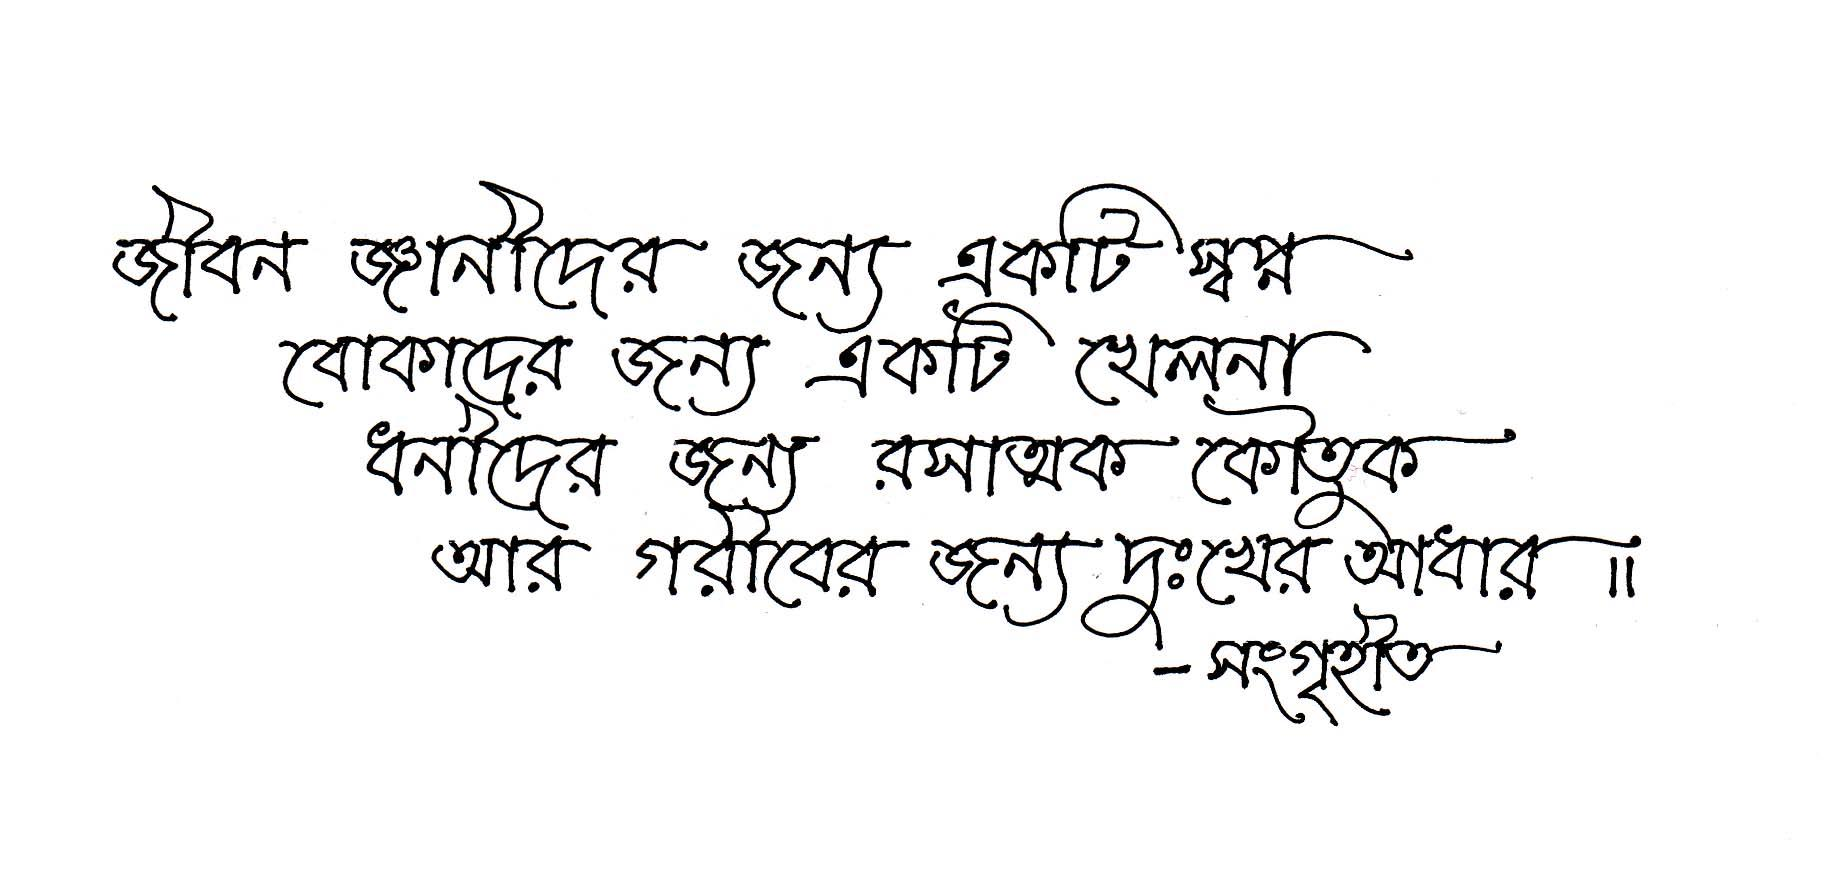 জীবন জ্ঞানীদের জন্য একটি স্বপ্ন
বোকাদের জন্য একটি খেলনা
ধনীদের জন্য রসাত্মক কৌতুক
আর গরীবের জন্য দুঃখের আধার ৷৷
– সংগৃহীত